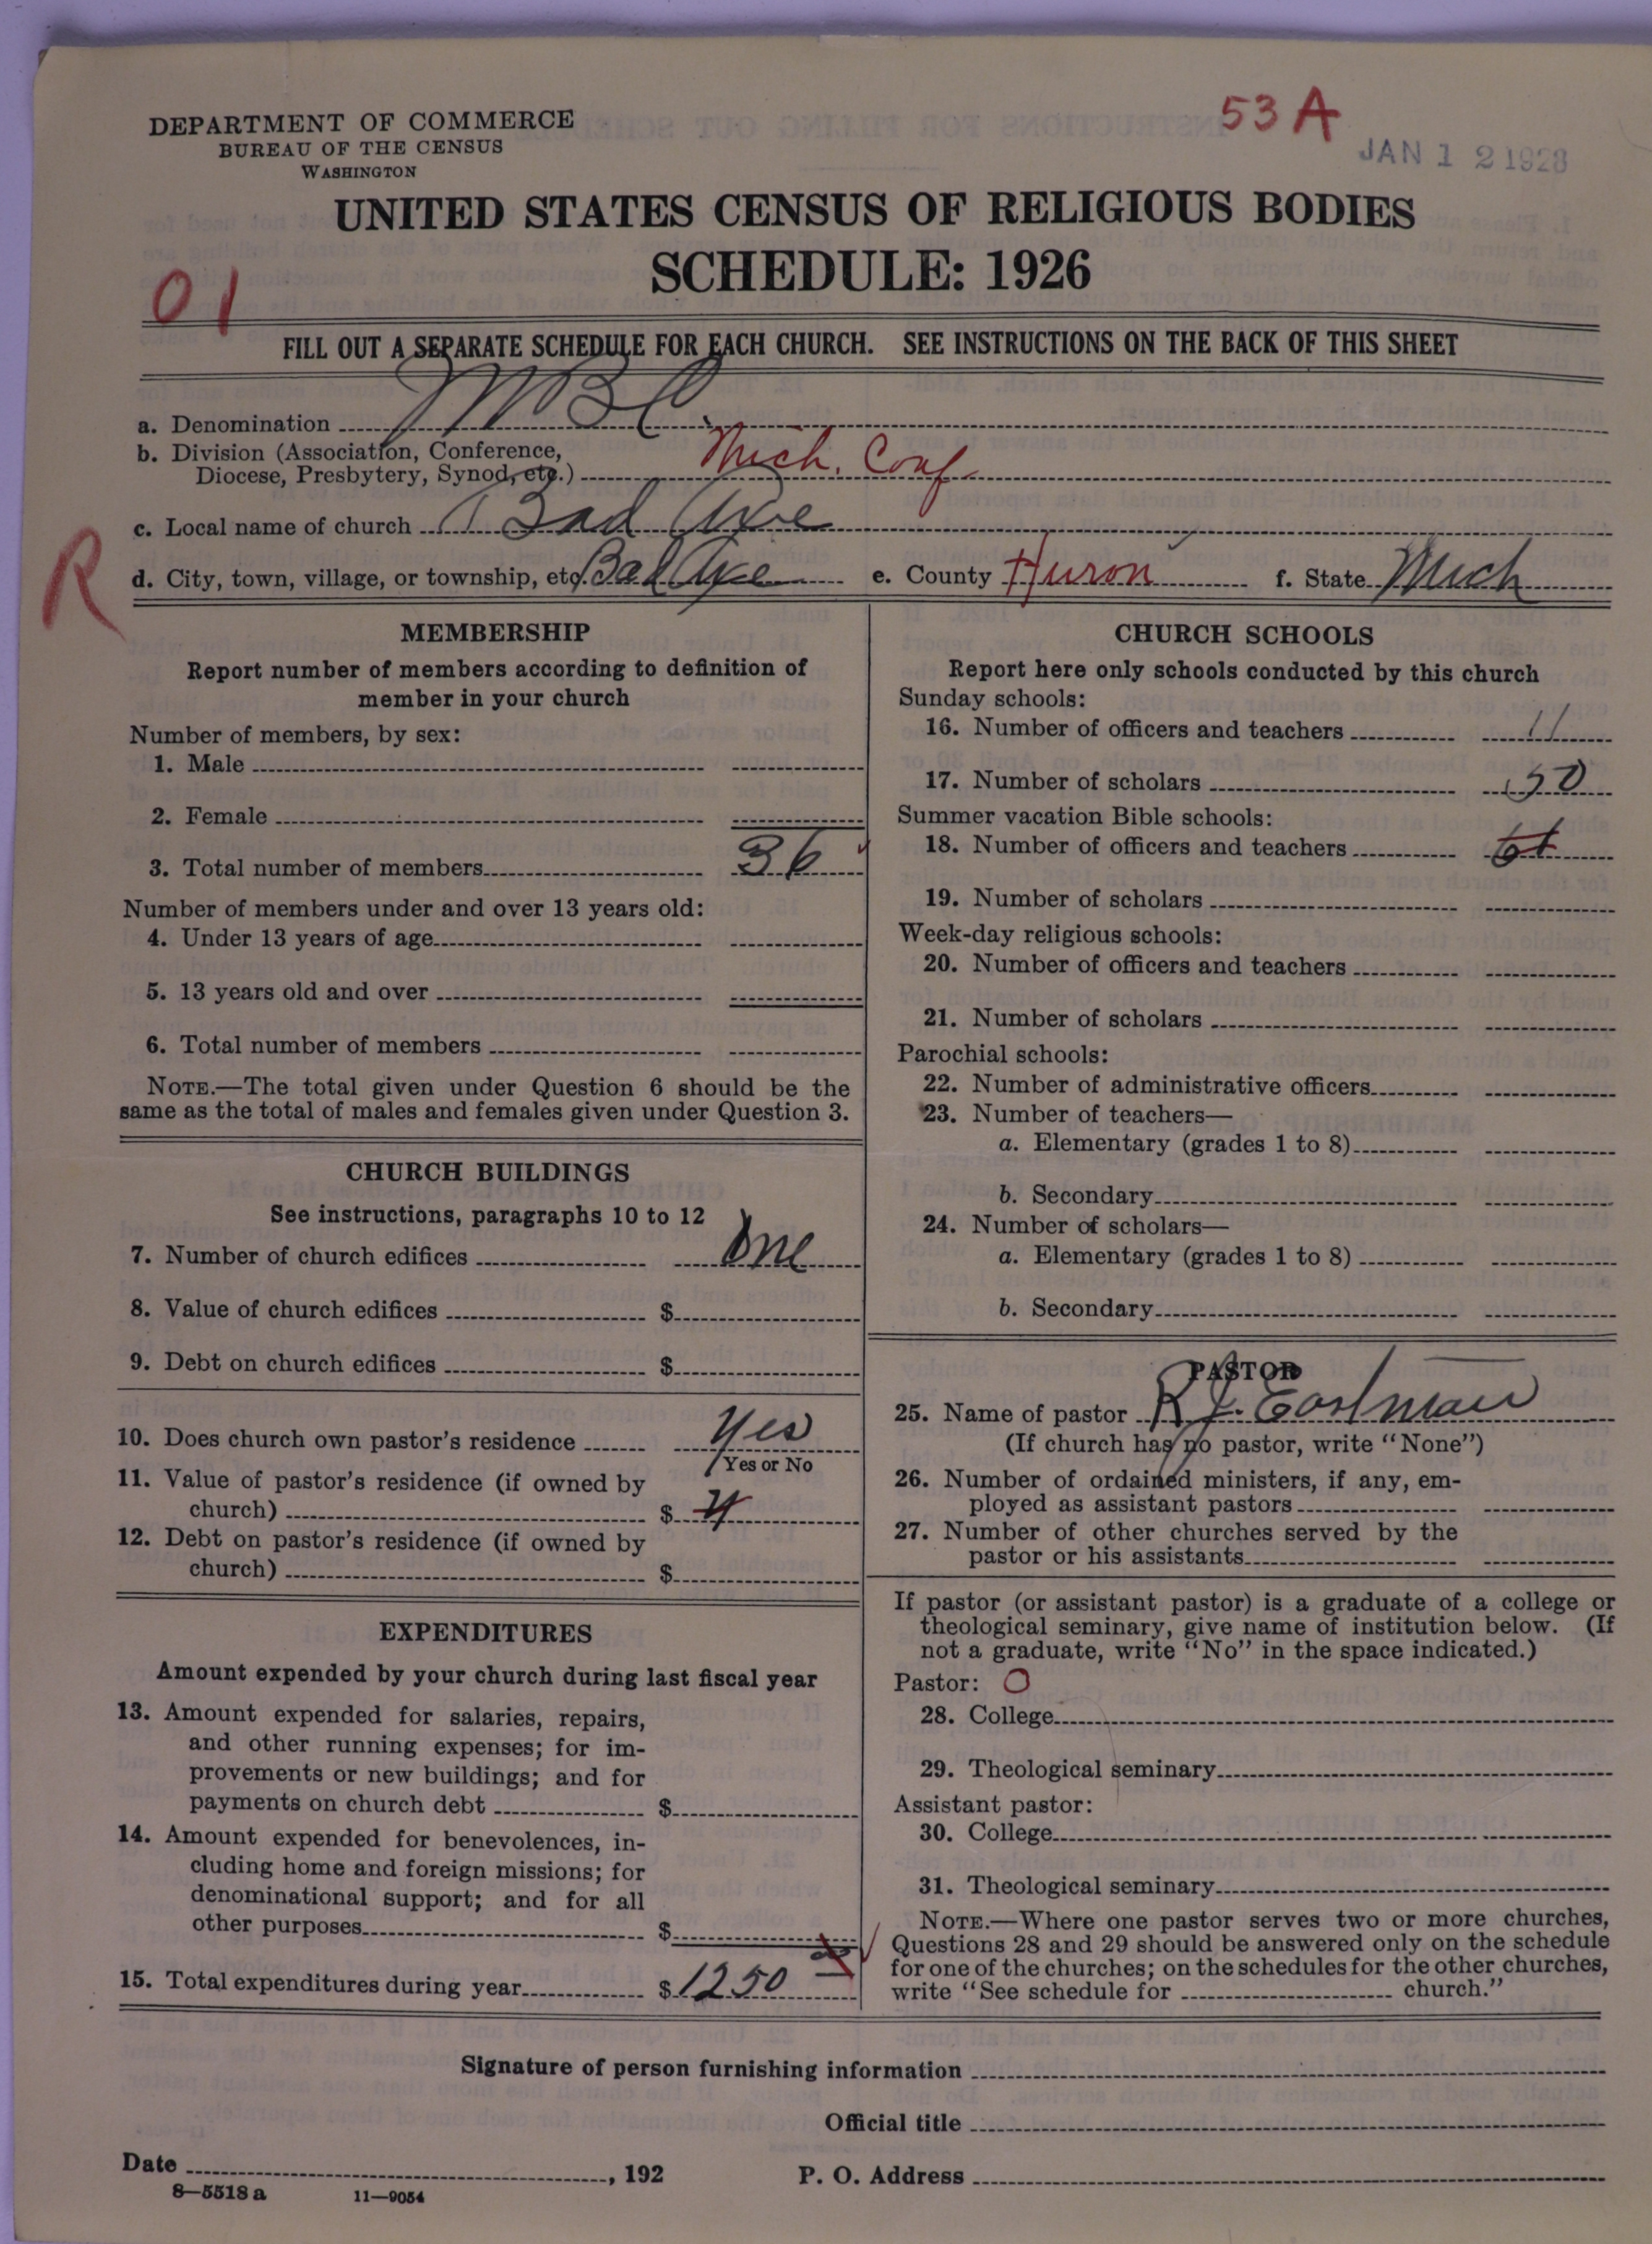 53 A
JAN 12 1928
DEPARTMENT OF COMMERCE
BUREAU OF THE CENSUS
WASHINGTON
UNITED STATES CENSUS OF RELIGIOUS BODIES
SCHEDULE: 1926
01
FILL OUT A SEPARATE SCHEDULE FOR EACH CHURCH. SEE INSTRUCTIONS ON THE BACK OF THIS SHEET
a. Denomination MBC.
b. Division (Association, Conference,
Diocese, Presbytery, Synod, etc.) Mich. Conf
c. Local name of church Bad Axe
R
d. City, town, village, or township, etc. Bad Axe e. County Huron f. State Mich
MEMBERSHIP
Report number of members according to definition of
member in your church
Number of members, by sex:
1. Male
2. Female
3. Total number of members 36
Number of members under and over 13 years old:
4. Under 13 years of age
5. 13 years old and over
6. Total number of members
NOTE.—The total given under Question 6 should be the
same as the total of males and females given under Question 3.
CHURCH BUILDINGS
See instructions, paragraphs 10 to 12
7. Number of church edifices One
8. Value of church edifices $
9. Debt on church edifices $
10. Does church own pastor's residence Yes
Yes or No
11. Value of pastor's residence (if owned by
church) $
12. Debt on pastor's residence (if owned by
church) $
EXPENDITURES
Amount expended by your church during last fiscal year
13. Amount expended for salaries, repairs,
and other running expenses; for im-
provements or new buildings; and for
payments on church debt $
14. Amount expended for benevolences, in-
cluding home and foreign missions; for
denominational support; and for all
other purposes $
15. Total expenditures during year $ 1250
CHURCH SCHOOLS
Report here only schools conducted by this church
Sunday schools:
16. Number of officers and teachers 11
17. Number of scholars 50
Summer vacation Bible schools:
18. Number of officers and teachers
19. Number of scholars
Week-day religious schools:
20. Number of officers and teachers
21. Number of scholars
Parochial schools:
22. Number of administrative officers
23. Number of teachers—
a. Elementary (grades 1 to 8)
b. Secondary
24. Number of scholars—
a. Elementary (grades 1 to 8)
b. Secondary
PASTOR
25. Name of pastor R. J. Eastman
(If church has no pastor, write "None")
26. Number of ordained ministers, if any, em-
ployed as assistant pastors
27. Number of other churches served by the
pastor or his assistants
If pastor (or assistant pastor) is a graduate of a college or
theological seminary, give name of institution below. (If
not a graduate, write "No" in the space indicated.)
Pastor: O
28. College
29. Theological seminary
Assistant pastor:
30. College
31. Theological seminary
NOTE.—Where one pastor serves two or more churches,
Questions 28 and 29 should be answered only on the schedule
for one of the churches; on the schedules for the other churches,
write "See schedule for church."
Signature of person furnishing information
Official title
Date , 192 P. O. Address
8—5518 a 11—9054